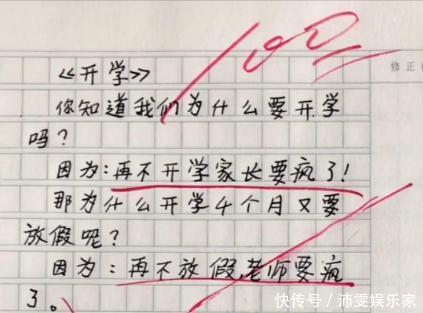 100
修正
《开学》
你知道我们为什么要开学
吗？
因为：再不开学家长要疯了！
那为什么开学4个月又要
放假呢？
因为：再不放假,老师要疯
了。
快传号/沛雯娱乐家